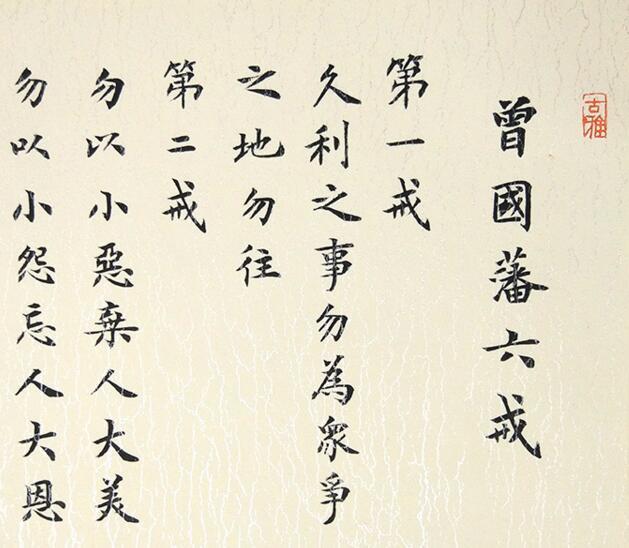 古雅
曾國藩六戒
第一戒
久利之事勿為眾爭
之地勿往
第二戒
勿以小惡棄人大美
勿以小怨忘人大恩